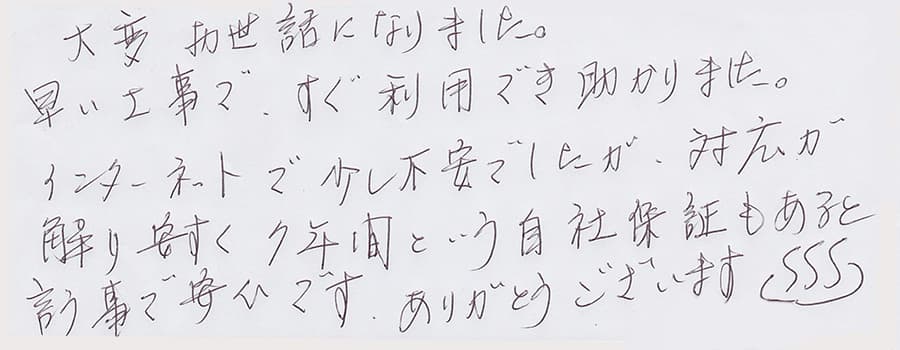 大変お世話になりました。
早い工事で、すぐ利用でき助かりました。
インターネットで少し不安でしたが、対応が
解り安すく9年間という自社保証もあると
言う事で安心です。ありがとうございます